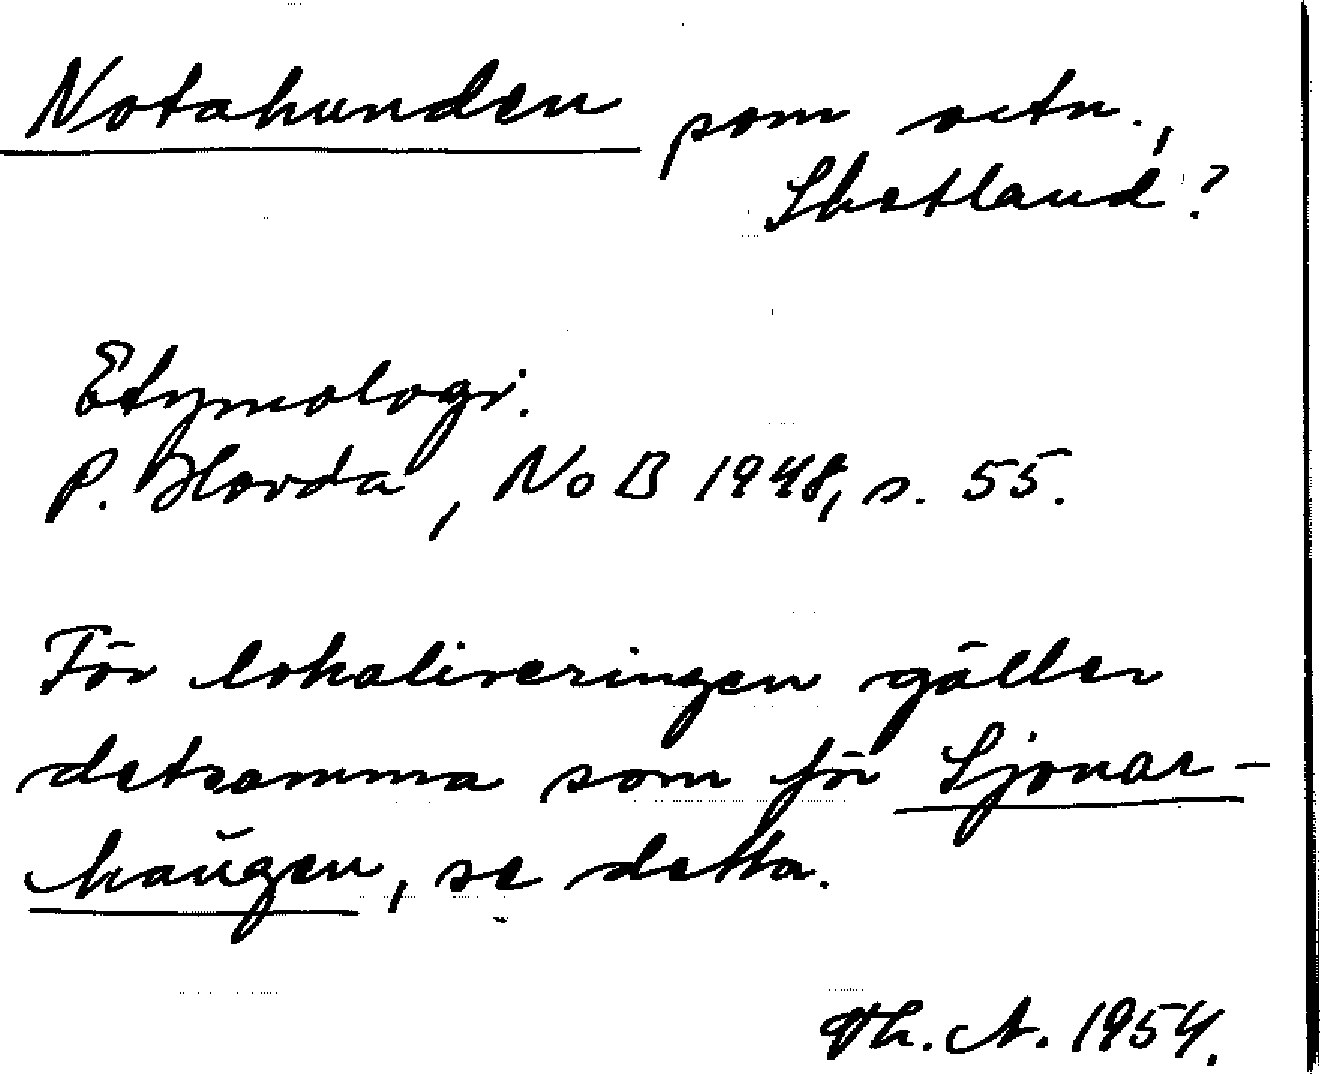 Notahunden som ortn.,
Shetland?
Etymologi.
P. Hovda, NoB 1948, s. 55.
För lokaliseringen gäller
detsamma som för Sjonar-
haŭgen, se detta.
Th. A. 1954.